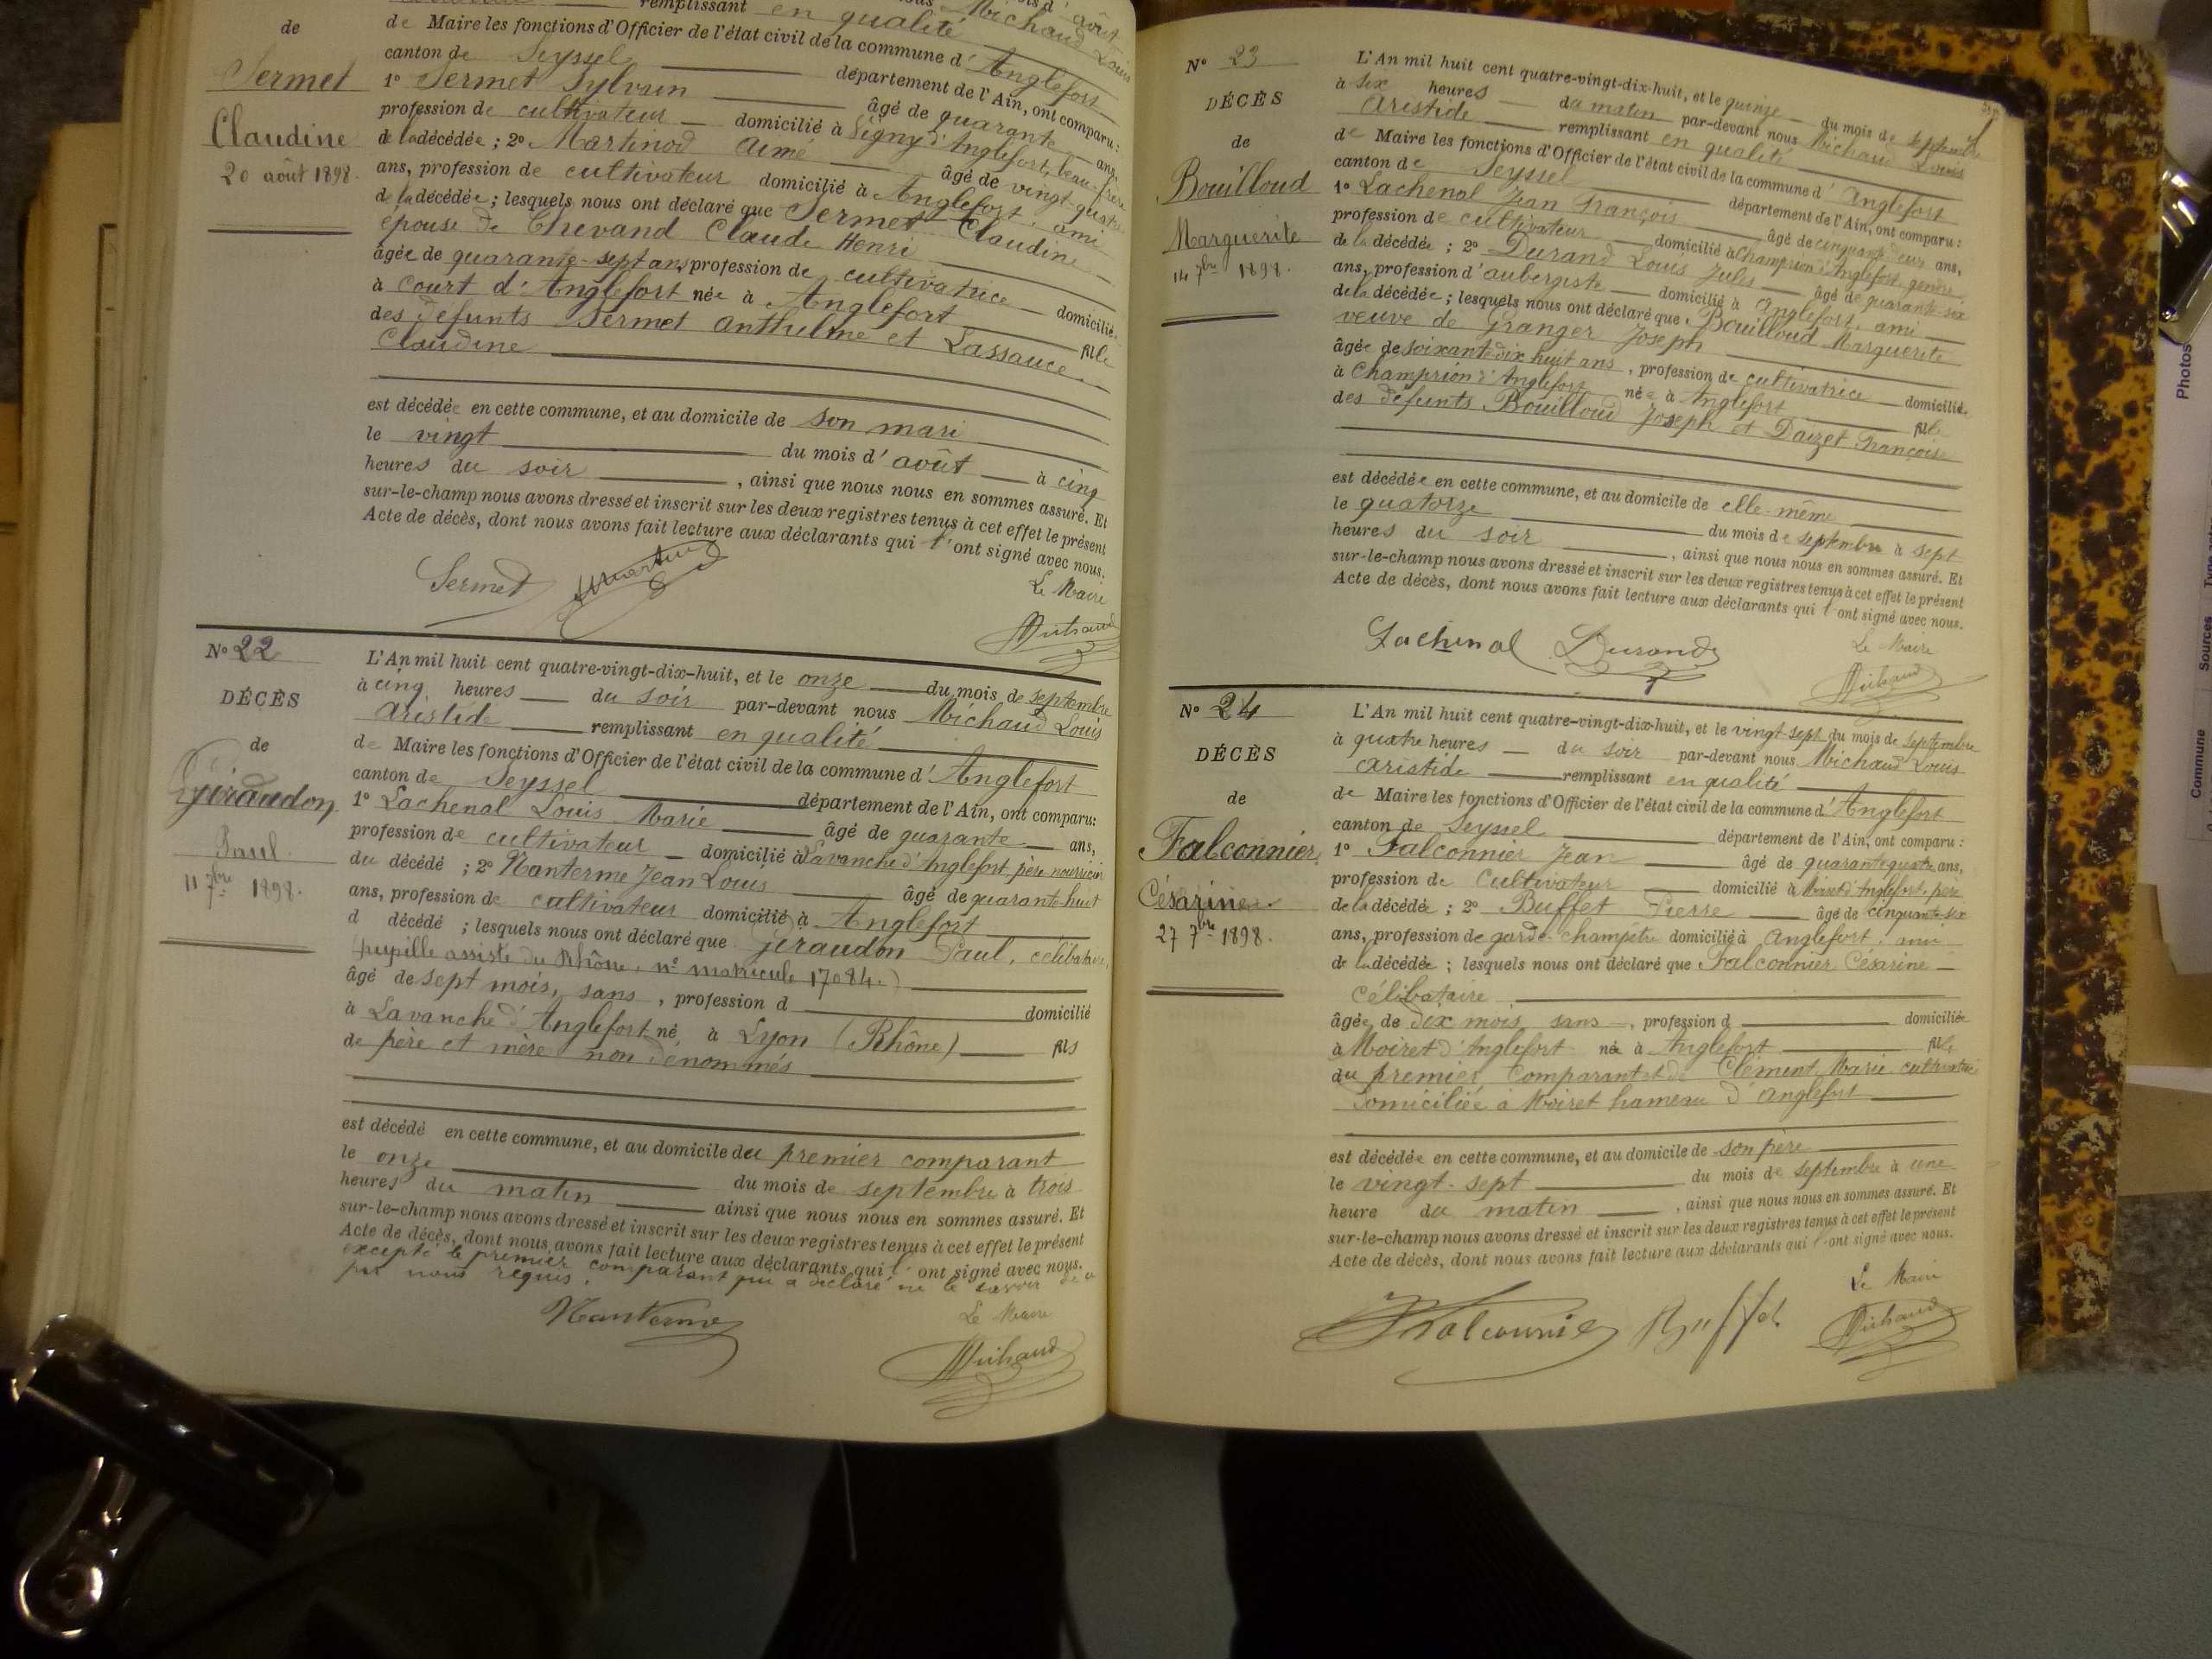 remplissant en qualité
de Maire les fonctions d'Officier de l'état civil de la commune d'Anglefort
canton de Seyssel département de l'Ain, ont comparu:
1° Sermet Sylvain âgé de quarante ans,
profession de cultivateur domicilié à Signy d'Anglefort, beau-frère
de la décédée; 2° Martinod Aimé âgé de vingt quatre
ans, profession de cultivateur domicilié à Anglefort, ami
de la décédée; lesquels nous ont déclaré que Sermet Claudine
épouse de Chevand Claude Henri
âgée de quarante-sept ans, profession de cultivatrice domiciliée
à Court d'Anglefort née à Anglefort fille
des défunts Sermet Anthelme et Lassauce
Claudine
est décédée en cette commune, et au domicile de son mari
le vingt du mois d'août à cinq
heures du soir, ainsi que nous nous en sommes assuré. Et
sur-le-champ nous avons dressé et inscrit sur les deux registres tenus à cet effet le présent
Acte de décès, dont nous avons fait lecture aux déclarants qui l'ont signé avec nous.
Le Maire
Sermet Michaud
de
Sermet
Claudine
20 août 1898.
N° 22
DÉCÈS
de
Giraudon
Paul
11 7bre 1898.
L'An mil huit cent quatre-vingt-dix-huit, et le onze du mois de septembre
à cinq heures du soir par-devant nous Michaud Louis
Aristide remplissant en qualité
de Maire les fonctions d'Officier de l'état civil de la commune d'Anglefort
canton de Seyssel département de l'Ain, ont comparu:
1° Lachenal Louis Marie âgé de quarante ans,
profession de cultivateur domicilié à Lavanche d'Anglefort, père nourricier
du décédé; 2° Nanterme Jean Louis âgé de quarante huit
ans, profession de cultivateur domicilié à Anglefort
d décédé; lesquels nous ont déclaré que Giraudon Paul, célibataire,
(pupille assisté du Rhône, n° matricule 17084.)
âgé de sept mois, sans, profession d domicilié
à Lavanche d'Anglefort né à Lyon (Rhône) fils
de père et mère non dénommés
est décédé en cette commune, et au domicile du premier comparant
le onze du mois de septembre à trois
heures du matin ainsi que nous nous en sommes assuré. Et
sur-le-champ nous avons dressé et inscrit sur les deux registres tenus à cet effet le présent
Acte de décès, dont nous avons fait lecture aux déclarants qui l'ont signé avec nous.
excepté le premier comparant qui a déclaré ne le savoir de ce
par nous requis.
Le Maire
Nanterme Michaud
N° 23
DÉCÈS
de
Bouilloud
Marguerite
14 7bre 1898.
L'An mil huit cent quatre-vingt-dix-huit, et le quinze du mois de septembre
à six heures du matin par-devant nous Michaud Louis
Aristide remplissant en qualité
de Maire les fonctions d'Officier de l'état civil de la commune d'Anglefort
canton de Seyssel département de l'Ain, ont comparu:
1° Lachenal Jean François âgé de cinquante deux ans,
profession de cultivateur domicilié à Champrion d'Anglefort, gendre
de la décédée; 2° Durand Louis Jules âgé de quarante-six
ans, profession d'aubergiste domicilié à Anglefort, ami
de la décédée; lesquels nous ont déclaré que Bouilloud Marguerite
veuve de Granger Joseph
âgée de soixante-dix huit ans, profession de cultivatrice domiciliée
à Champrion d'Anglefort née à Anglefort fille
des défunts Bouilloud Joseph et Daizet Françoise
est décédée en cette commune, et au domicile de elle-même
le quatorze du mois de septembre à sept
heures du soir, ainsi que nous nous en sommes assuré. Et
sur-le-champ nous avons dressé et inscrit sur les deux registres tenus à cet effet le présent
Acte de décès, dont nous avons fait lecture aux déclarants qui l'ont signé avec nous.
Le Maire
Lachenal Durand Michaud
N° 24
DÉCÈS
de
Falconnier
Césarine
27 7bre 1898.
L'An mil huit cent quatre-vingt-dix-huit, et le vingt-sept du mois de septembre
à quatre heures du soir par-devant nous Michaud Louis
Aristide remplissant en qualité
de Maire les fonctions d'Officier de l'état civil de la commune d'Anglefort
canton de Seyssel département de l'Ain, ont comparu:
1° Falconnier Jean âgé de quarante quatre ans,
profession de cultivateur domicilié à Moiret d'Anglefort, père
de la décédée; 2° Buffet Pierre âgé de cinquante-six
ans, profession de garde-champêtre domicilié à Anglefort, ami
de la décédée; lesquels nous ont déclaré que Falconnier Césarine
célibataire
âgée de dix mois, sans, profession d domiciliée
à Moiret d'Anglefort née à Anglefort fille
du premier comparant et de Clément Marie cultivatrice
domiciliée à Moiret hameau d'Anglefort
est décédée en cette commune, et au domicile de son père
le vingt-sept du mois de septembre à une
heure du matin, ainsi que nous nous en sommes assuré. Et
sur-le-champ nous avons dressé et inscrit sur les deux registres tenus à cet effet le présent
Acte de décès, dont nous avons fait lecture aux déclarants qui l'ont signé avec nous.
Le Maire
Falconnier Buffet Michaud
Photos
Commune Sources